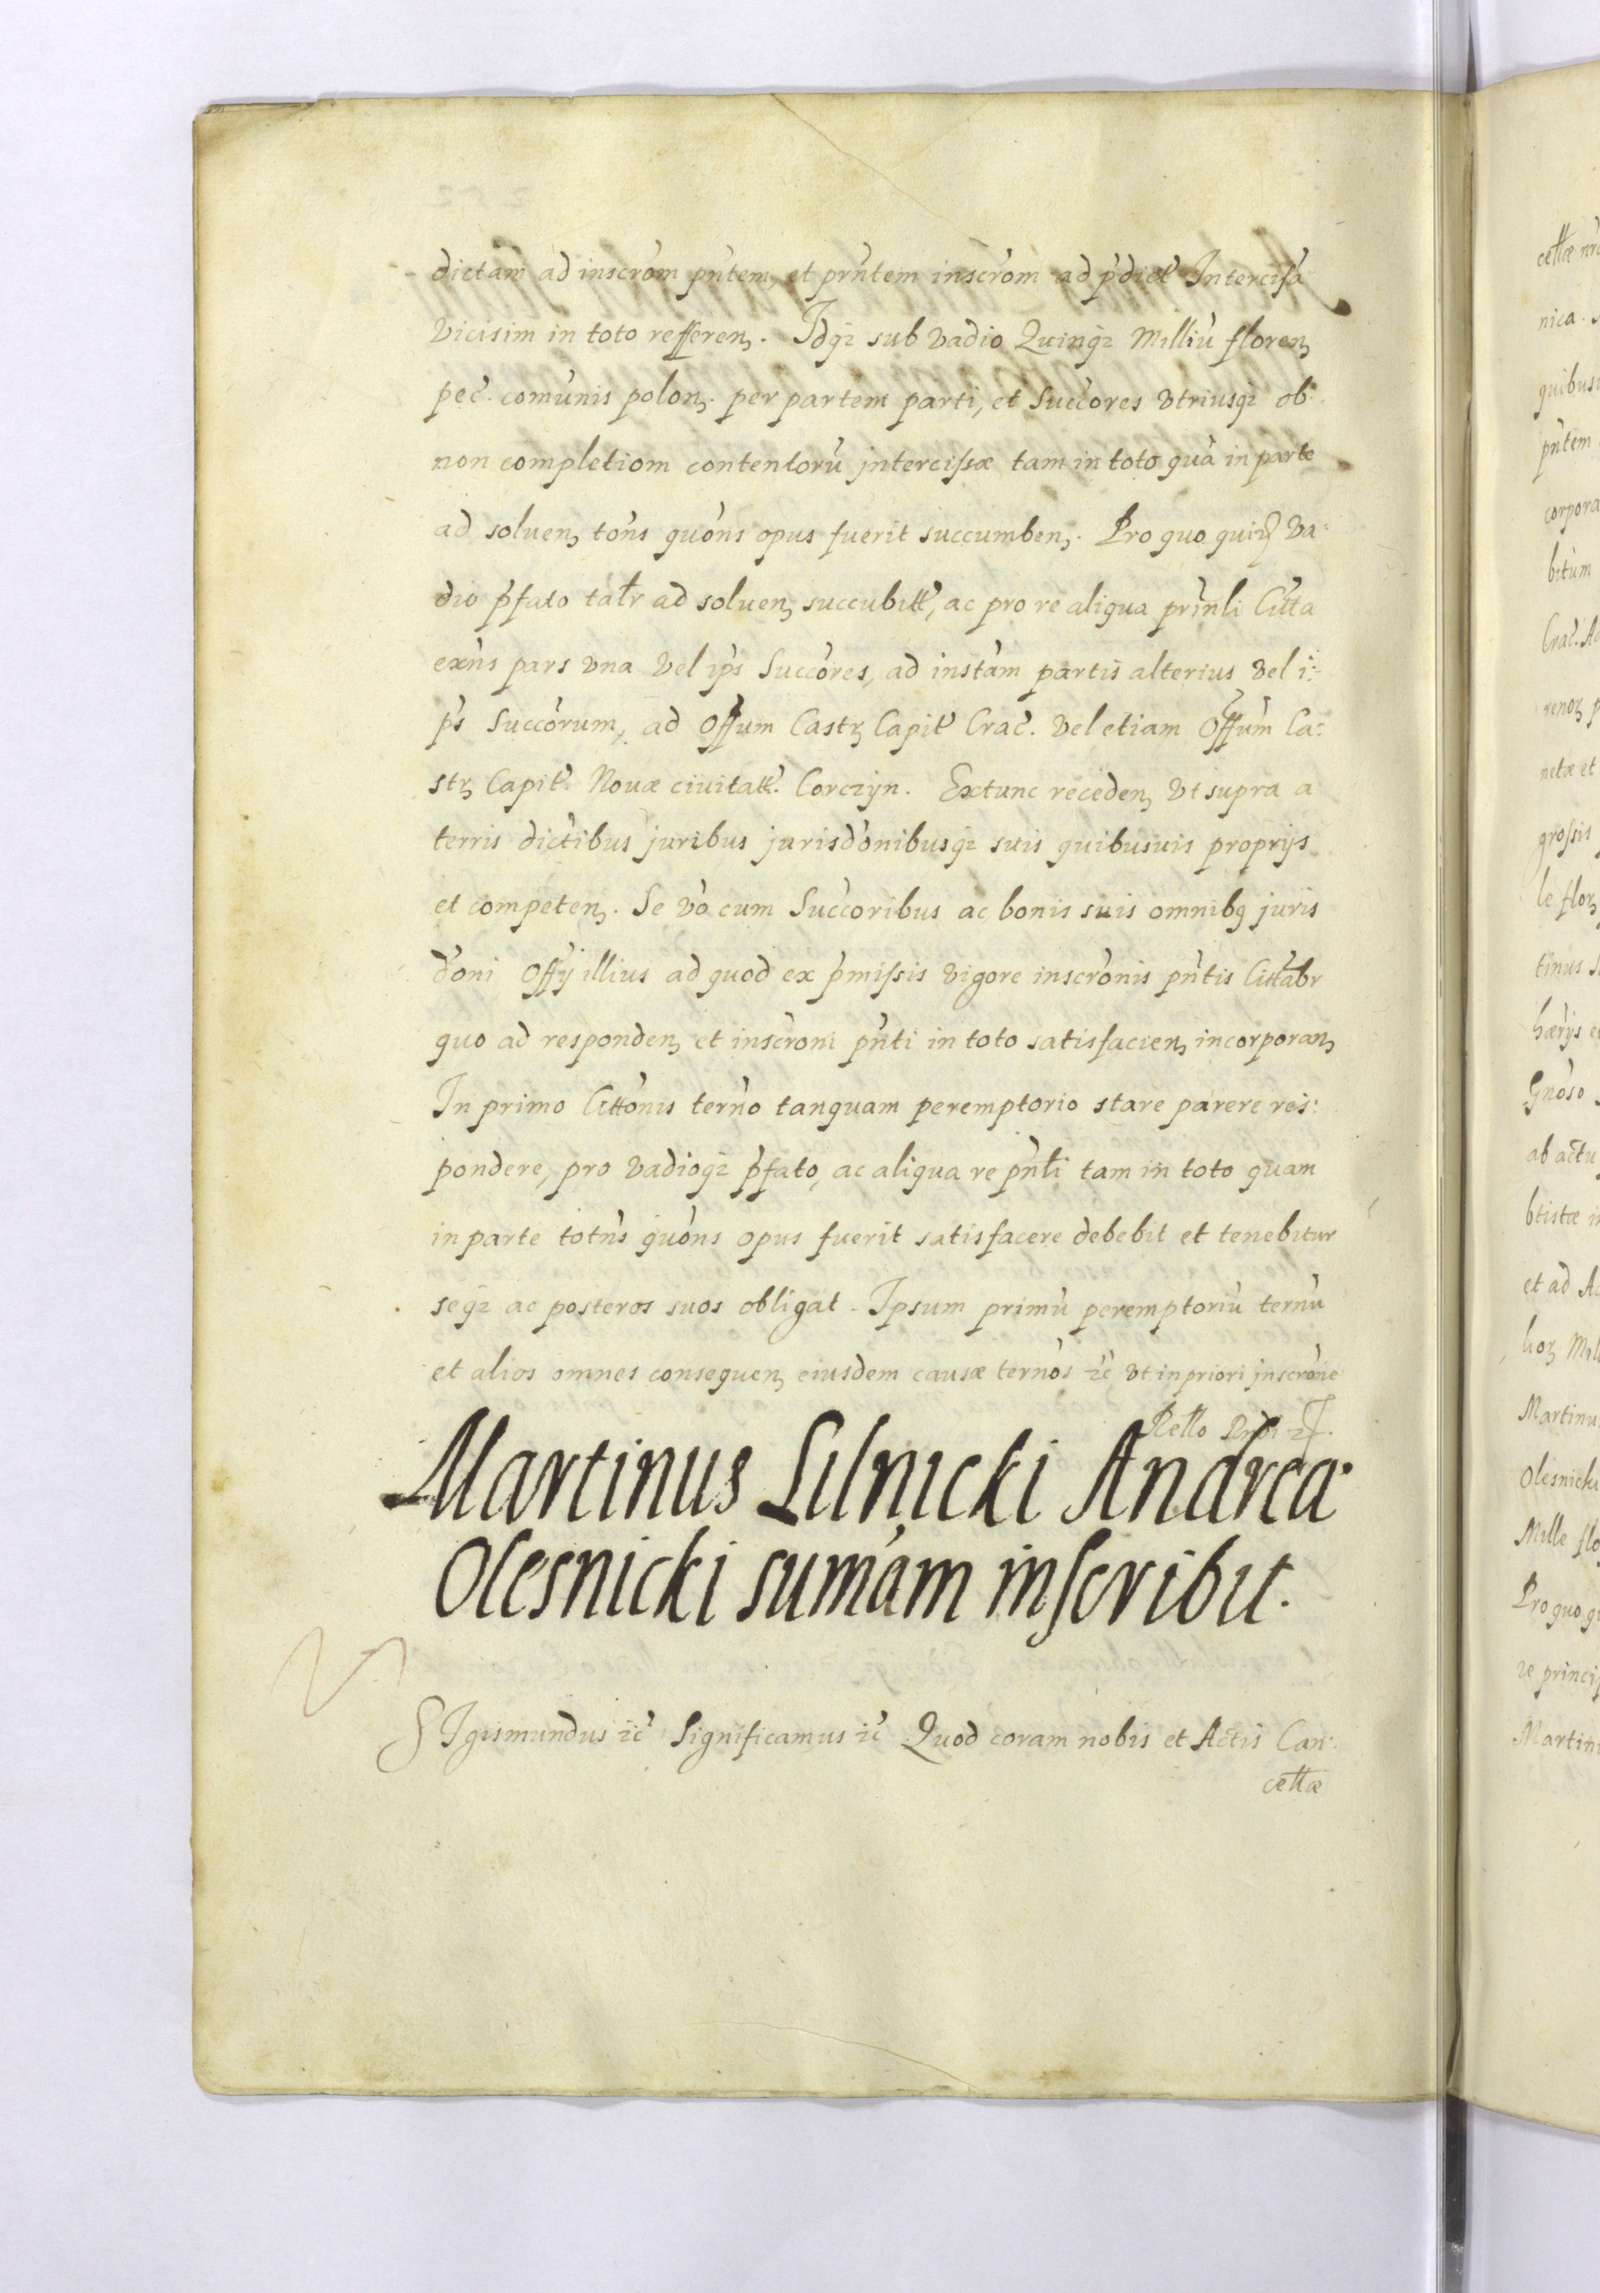 dictam ad inscrom pntem, et prntem inscrom ad pdict Intercisa
vicisim in toto refferen. Idq; sub vadio Quinq; Milliu floren
pec. comunis polon. per partem parti, et Succores vtriusq; ob
non completiom contentoru jntercissæ tam in toto qua in parte
ad soluen, tons quons opus fuerit succumben. Pro quo quid va:
dio pfato talr ad soluen succubitt, ac pro re aliqua prinli Citta
exns pars vna vel ips Succores, ad instam partis alterius vel i:
ps Succorum, ad Offum Castr Capit Crac. vel etiam Offum Ca:
str Capit Nouæ ciuitatt. Corczyn. Extunc receden vt supra a
terris dictibus juribus jurisdonibusq; suis quibusuis proprijs
et competen. Se vo cum Succoribus ac bonis suis omnibq juris
doni Offij illius ad quod ex pmissis vigore inscronis pntis Cittabr
quo ad responden et inscroni pnti in toto satisfacien incorporan
In primo Cittonis terno tanquam peremptorio stare parere res:
pondere, pro vadioq; pfato, ac aliqua re pnli tam in toto quam
in parte totns quons opus fuerit satisfacere debebit et tenebitur
seq; ac posteros suos obligat. Ipsum primu peremptoriu ternu
et alios omnes consequen eiusdem causæ ternos etc vt in priori jnscrone
Rello
Martinus Silnicki Andrea
Olesnicki sumam inscribit.
SIgismundus etc Significamus etc Quod coram nobis et Actis Can:
cellæ
cellæ
nica.
quibus
pntem
corpora
bitum
Crac.
renor
netæ et
grossis
le flor
tinus
hærijs
Gnoso
ab actu
btistæ
et ad
hor
Martinu
Olesnicki
Mille flo
Pro quo
re princip
Martin